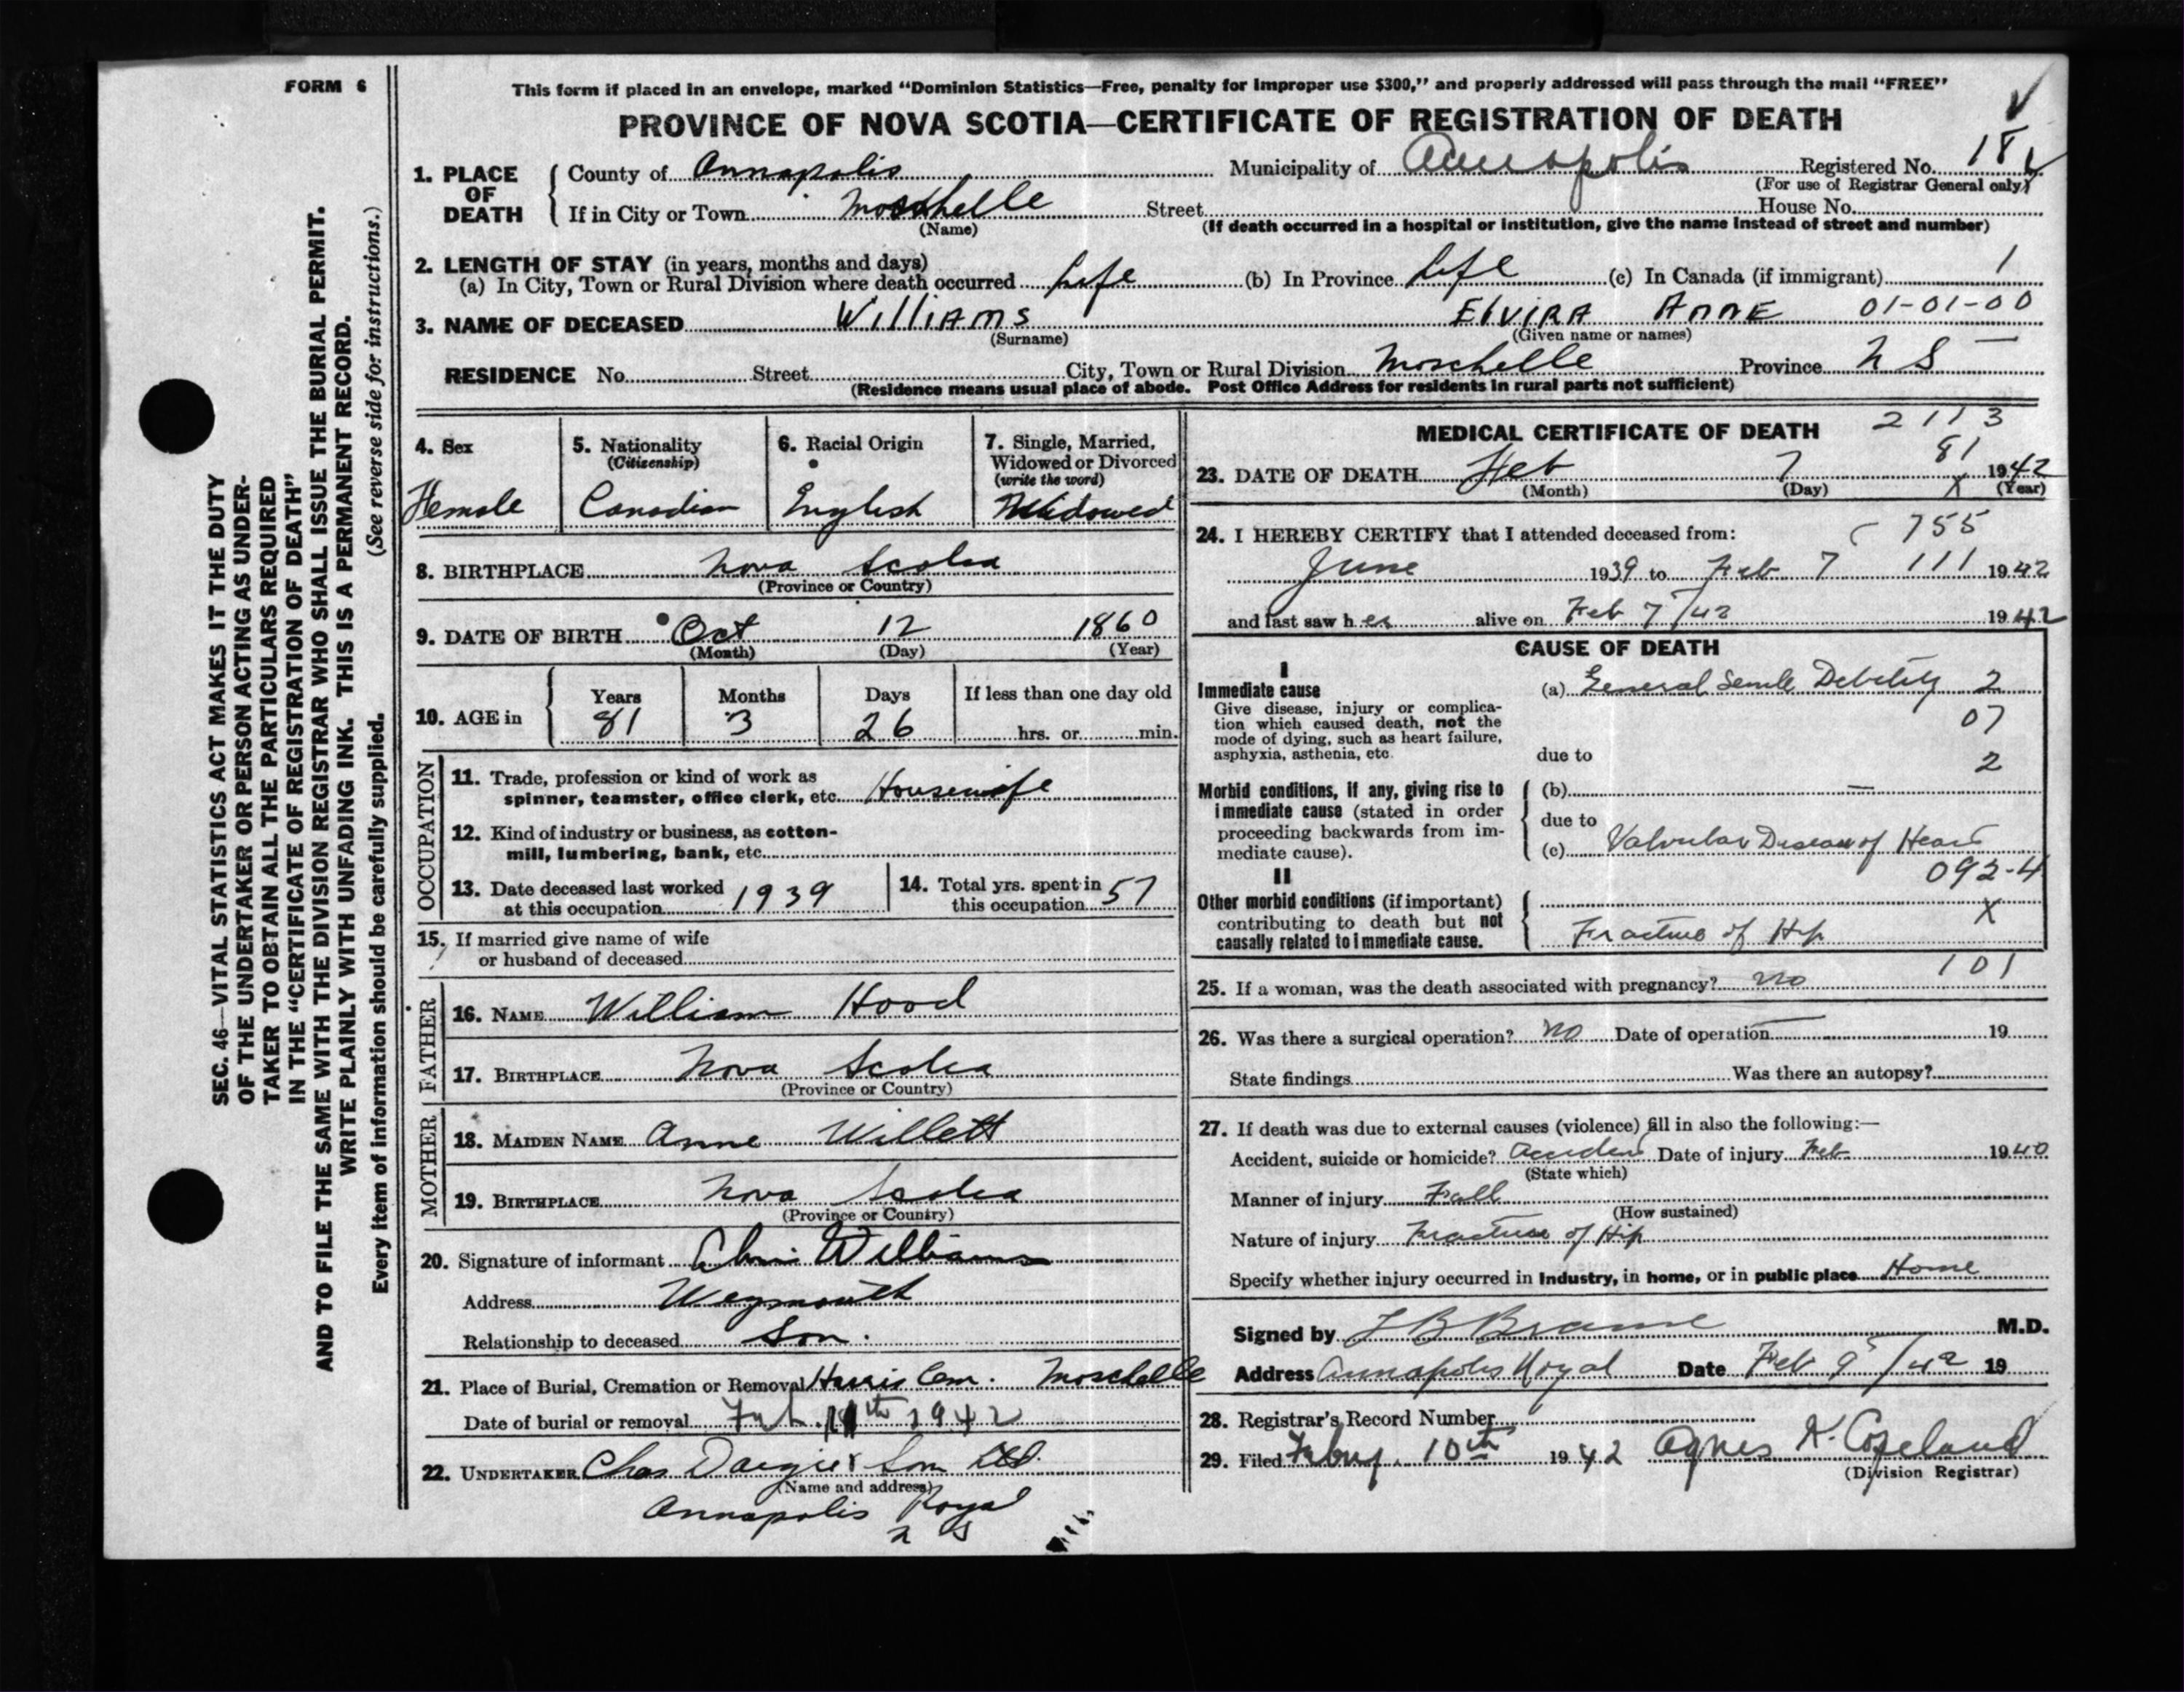 FORM 6
This form if placed in an envelope, marked "Dominion Statistics—Free, penalty for improper use $300," and properly addressed will pass through the mail "FREE"
PROVINCE OF NOVA SCOTIA—CERTIFICATE OF REGISTRATION OF DEATH
SEC. 46—VITAL STATISTICS ACT MAKES IT THE DUTY
OF THE UNDERTAKER OR PERSON ACTING AS UNDER-
TAKER TO OBTAIN ALL THE PARTICULARS REQUIRED
IN THE "CERTIFICATE OF REGISTRATION OF DEATH"
AND TO FILE THE SAME WITH THE DIVISION REGISTRAR WHO SHALL ISSUE THE BURIAL PERMIT.
WRITE PLAINLY WITH UNFADING INK. THIS IS A PERMANENT RECORD.
Every item of information should be carefully supplied. (See reverse side for instructions.)
1. PLACE OF DEATH
County of Annapolis Municipality of Annapolis Registered No. 18
(For use of Registrar General only)
If in City or Town Moschelle Street House No.
(Name) (If death occurred in a hospital or institution, give the name instead of street and number)
2. LENGTH OF STAY (in years, months and days)
(a) In City, Town or Rural Division where death occurred Life (b) In Province Life (c) In Canada (if immigrant) 1
3. NAME OF DECEASED Williams Elvira Anne 01-01-00
(Surname) (Given name or names)
RESIDENCE No. Street City, Town or Rural Division Moschelle Province N S
(Residence means usual place of abode. Post Office Address for residents in rural parts not sufficient)
4. Sex
Female
5. Nationality
(Citizenship)
Canadian
6. Racial Origin
English
7. Single, Married,
Widowed or Divorced
(write the word)
Widowed
8. BIRTHPLACE Nova Scotia
(Province or Country)
9. DATE OF BIRTH Oct 12 1860
(Month) (Day) (Year)
10. AGE in
Years Months Days If less than one day old
81 3 26 hrs. or min.
OCCUPATION
11. Trade, profession or kind of work as
spinner, teamster, office clerk, etc. Housewife
12. Kind of industry or business, as cotton-
mill, lumbering, bank, etc.
13. Date deceased last worked
at this occupation 1939
14. Total yrs. spent in
this occupation 57
15. If married give name of wife
or husband of deceased
FATHER
16. NAME William Hood
17. BIRTHPLACE Nova Scotia
(Province or Country)
MOTHER
18. MAIDEN NAME Anne Willett
19. BIRTHPLACE Nova Scotia
(Province or Country)
20. Signature of informant Williams
Address Weymouth
Relationship to deceased Son.
21. Place of Burial, Cremation or Removal Harris Cem. Moschelle
Date of burial or removal Feb. 11th 1942
22. UNDERTAKER Chas Dargie & Son Ltd.
(Name and address)
Annapolis Royal
N S
MEDICAL CERTIFICATE OF DEATH 2113
81
23. DATE OF DEATH Feb 7 1942
(Month) (Day) X (Year)
24. I HEREBY CERTIFY that I attended deceased from: 755
June 1939 to Feb 7 111 1942
and last saw her alive on Feb 7/42 1942
CAUSE OF DEATH
I
Immediate cause
Give disease, injury or complica-
tion which caused death, not the
mode of dying, such as heart failure,
asphyxia, asthenia, etc.
(a) General Senile Debility 2
07
due to
2
Morbid conditions, if any, giving rise to
immediate cause (stated in order
proceeding backwards from im-
mediate cause).
(b) —
due to
(c) Valvular Disease of Heart
092-4
II
Other morbid conditions (if important)
contributing to death but not
causally related to immediate cause.
X
Fracture of Hip
101
25. If a woman, was the death associated with pregnancy? no
26. Was there a surgical operation? no Date of operation — 19
State findings Was there an autopsy?
27. If death was due to external causes (violence) fill in also the following:—
Accident, suicide or homicide? Accident Date of injury Feb 1940
(State which)
Manner of injury Fall
(How sustained)
Nature of injury Fracture of Hip
Specify whether injury occurred in Industry, in home, or in public place Home
Signed by M.D.
Address Annapolis Royal Date Feb 9/42 19
28. Registrar's Record Number
29. Filed Feby. 10th 1942 Agnes K. Copeland
(Division Registrar)